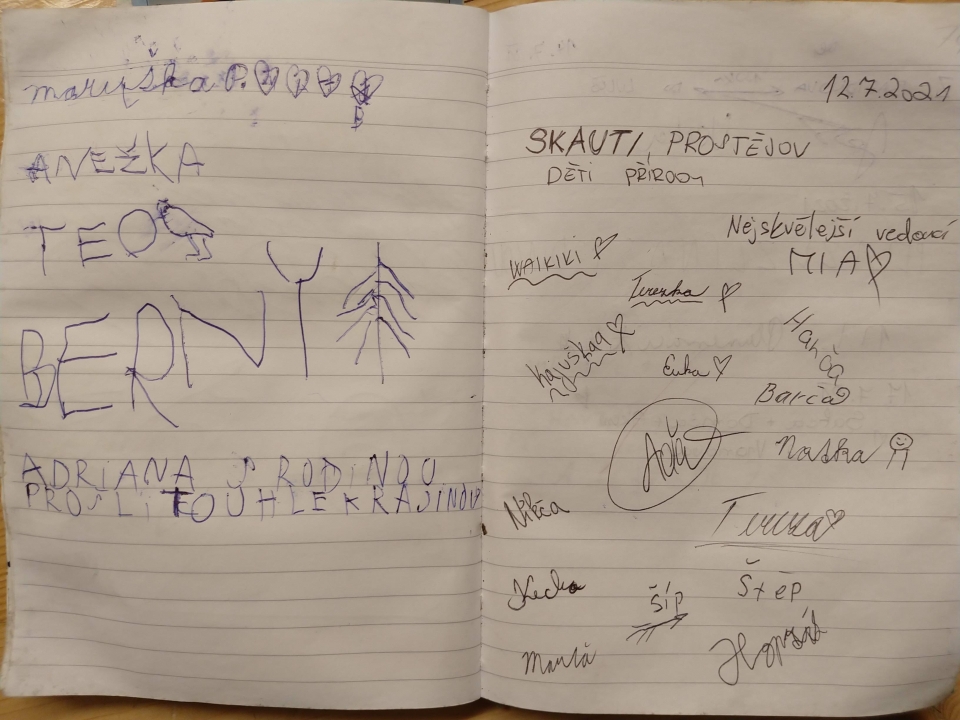 maruška P.
ANEŽKA
TEO
BERNY
ADRIANA S RODINOU
PROSLI TOUHLE KRAJINOU
12.7.2021
SKAUTI, PROSTĚJOV
DĚTI PŘÍRODY
Nejskvělejší vedoucí
MIA
WAIKIKI
Terezka
Hanča
Kajuškaa
Barča
Naťka
Nikča
Tereza
ŠÍP
Štěp